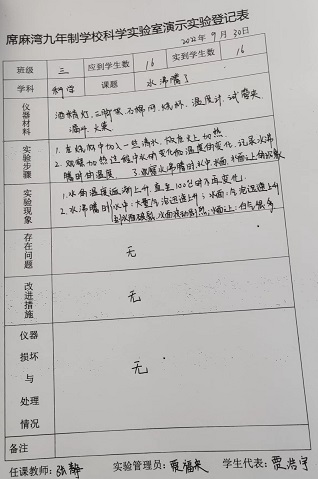 席麻湾九年制学校科学实验室演示实验登记表
2022年9月30日
班级 三 应到学生数 16 实到学生数 16
学科 科学 课题 水沸腾了
仪器材料 酒精灯、三脚架、石棉网、烧杯、温度计、试管夹、
火柴
实验步骤 1. 在烧杯中加入一些清水，放在火上加热
2. 观察加热过程中水的变化和温度的变化，记录水沸
腾时的温度 3. 观察水沸腾时水中、水面、水面上的现象
实验现象 1. 水的温度逐渐上升，直至100℃时不再变化
2. 水沸腾时水中：大量气泡迅速上升；水面：气泡迅速上升
水面上：白气很多
存在问题 无
改进措施 无
仪器损坏与处理情况 无
备注
任课教师：张静 实验管理员：贾福来 学生代表：贾浩宇